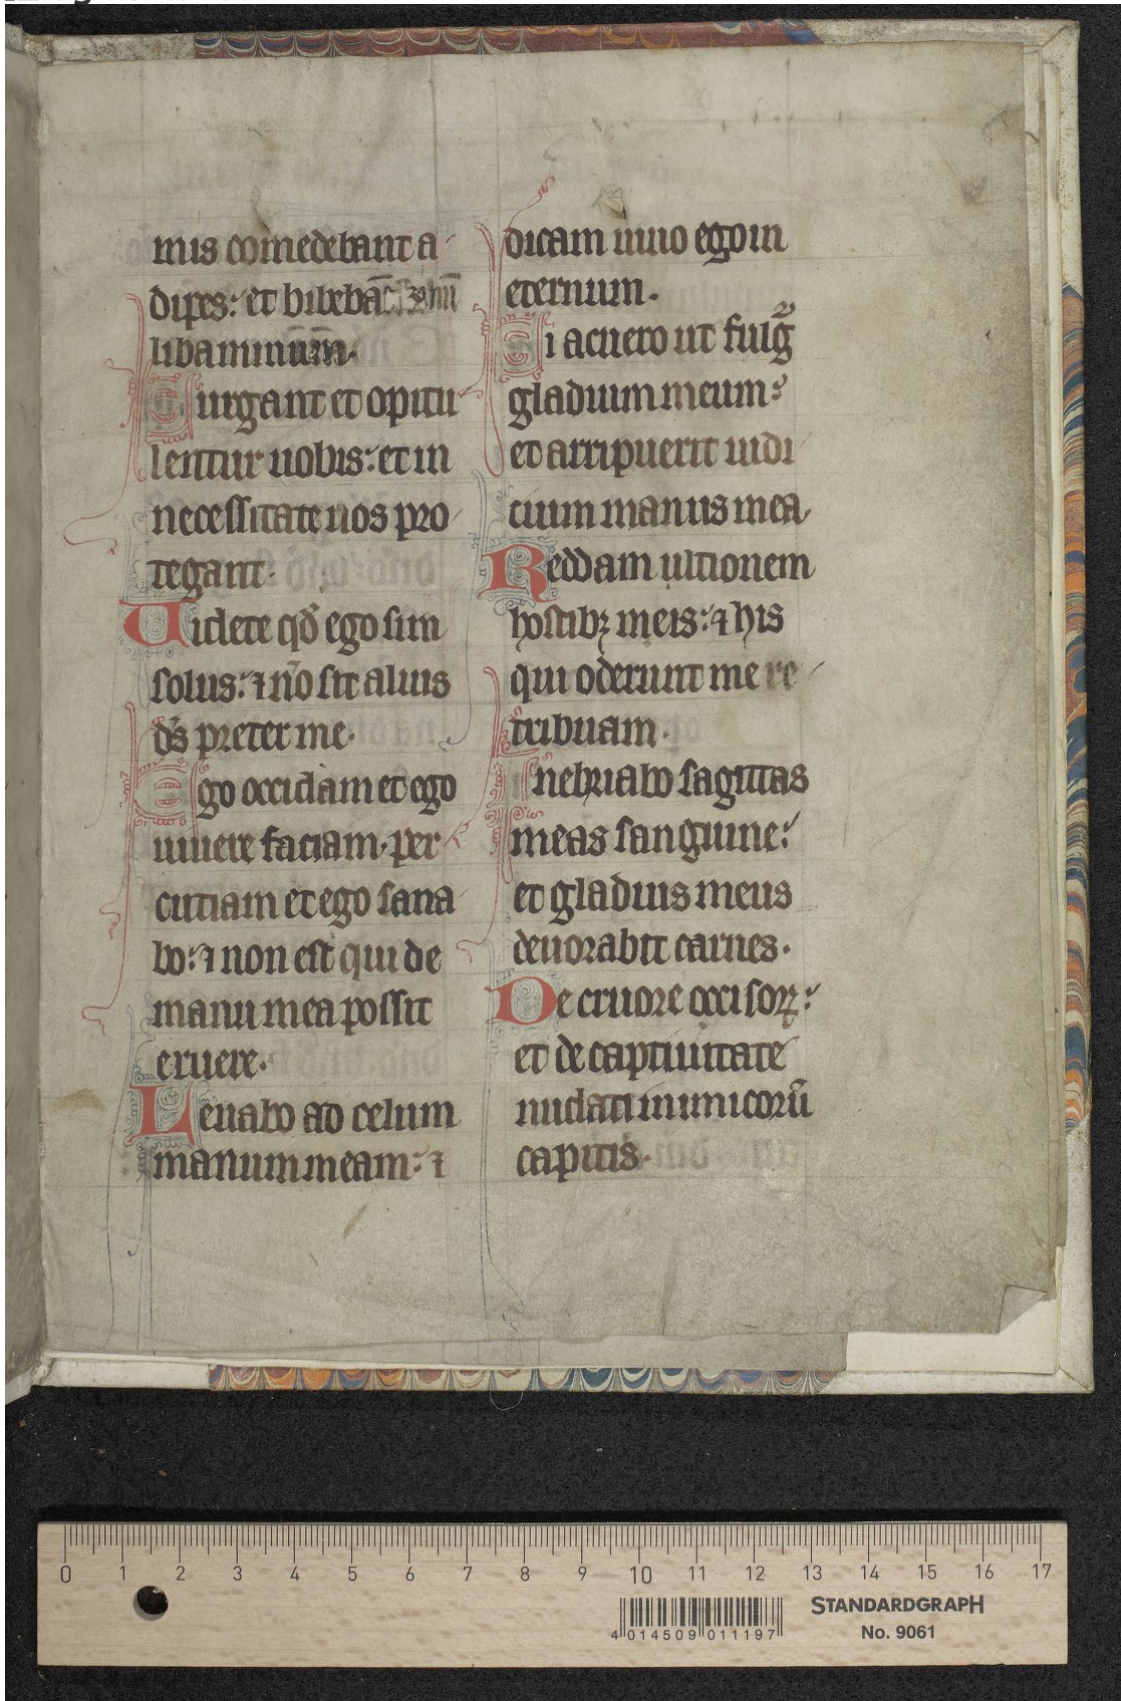 mis comedebant a
dipes: et bibebāt
libaminum.
Surgant et opitu
lentur uobis: et in
necessitate uos pro
tegant.
Videte qđ ego sim
solus: ⁊ nō sit alius
ds̄ preter me.
Ego occidam et ego
uiuere faciam. per
cutiam et ego sana
bo: ⁊ non est qui de
manu mea possit
eruere.
Leuabo ad celum
manum meam: ⁊
dicam uiuo ego in
eternum.
Si acuero ut fulg̃
gladium meum:
et arripuerit iudi
cium manus mea.
Reddam ultionem
hostibꝫ meis: ⁊ his
qui oderunt me re
tribuam.
Inebriabo sagittas
meas sanguine:
et gladius meus
deuorabit carnes.
De cruore occisoꝝ:
et de captiuitate
nudati inimicorū
capitis.
0 1 2 3 4 5 6 7 8 9 10 11 12 13 14 15 16 17
4 014509 011197
STANDARDGRAPH
No. 9061